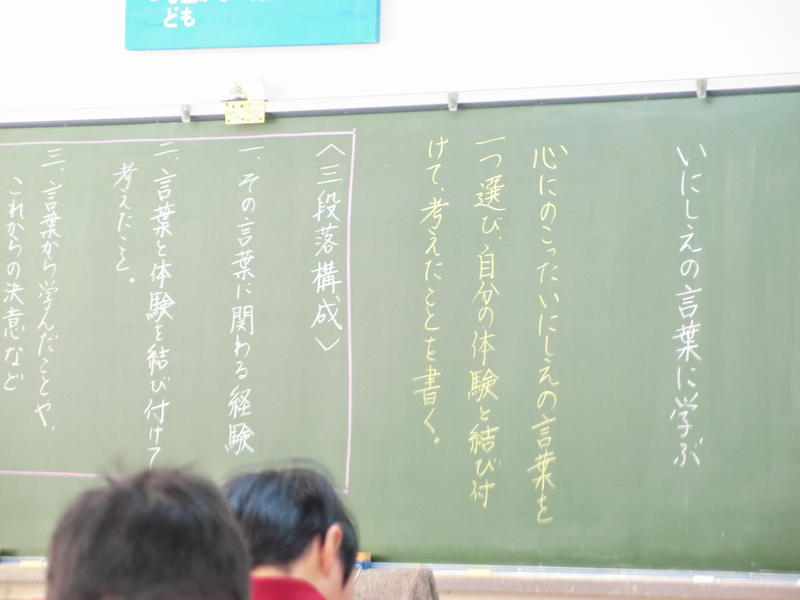 ども
いにしえの言葉に学ぶ
心にのこったいにしえの言葉を
一つ選び、自分の体験と結び付
けて、考えたことを書く。
〈三段落構成〉
一、その言葉に関わる経験
二、言葉と体験を結び付けて
考えたこと。
三、言葉から学んだことや、
これからの決意など